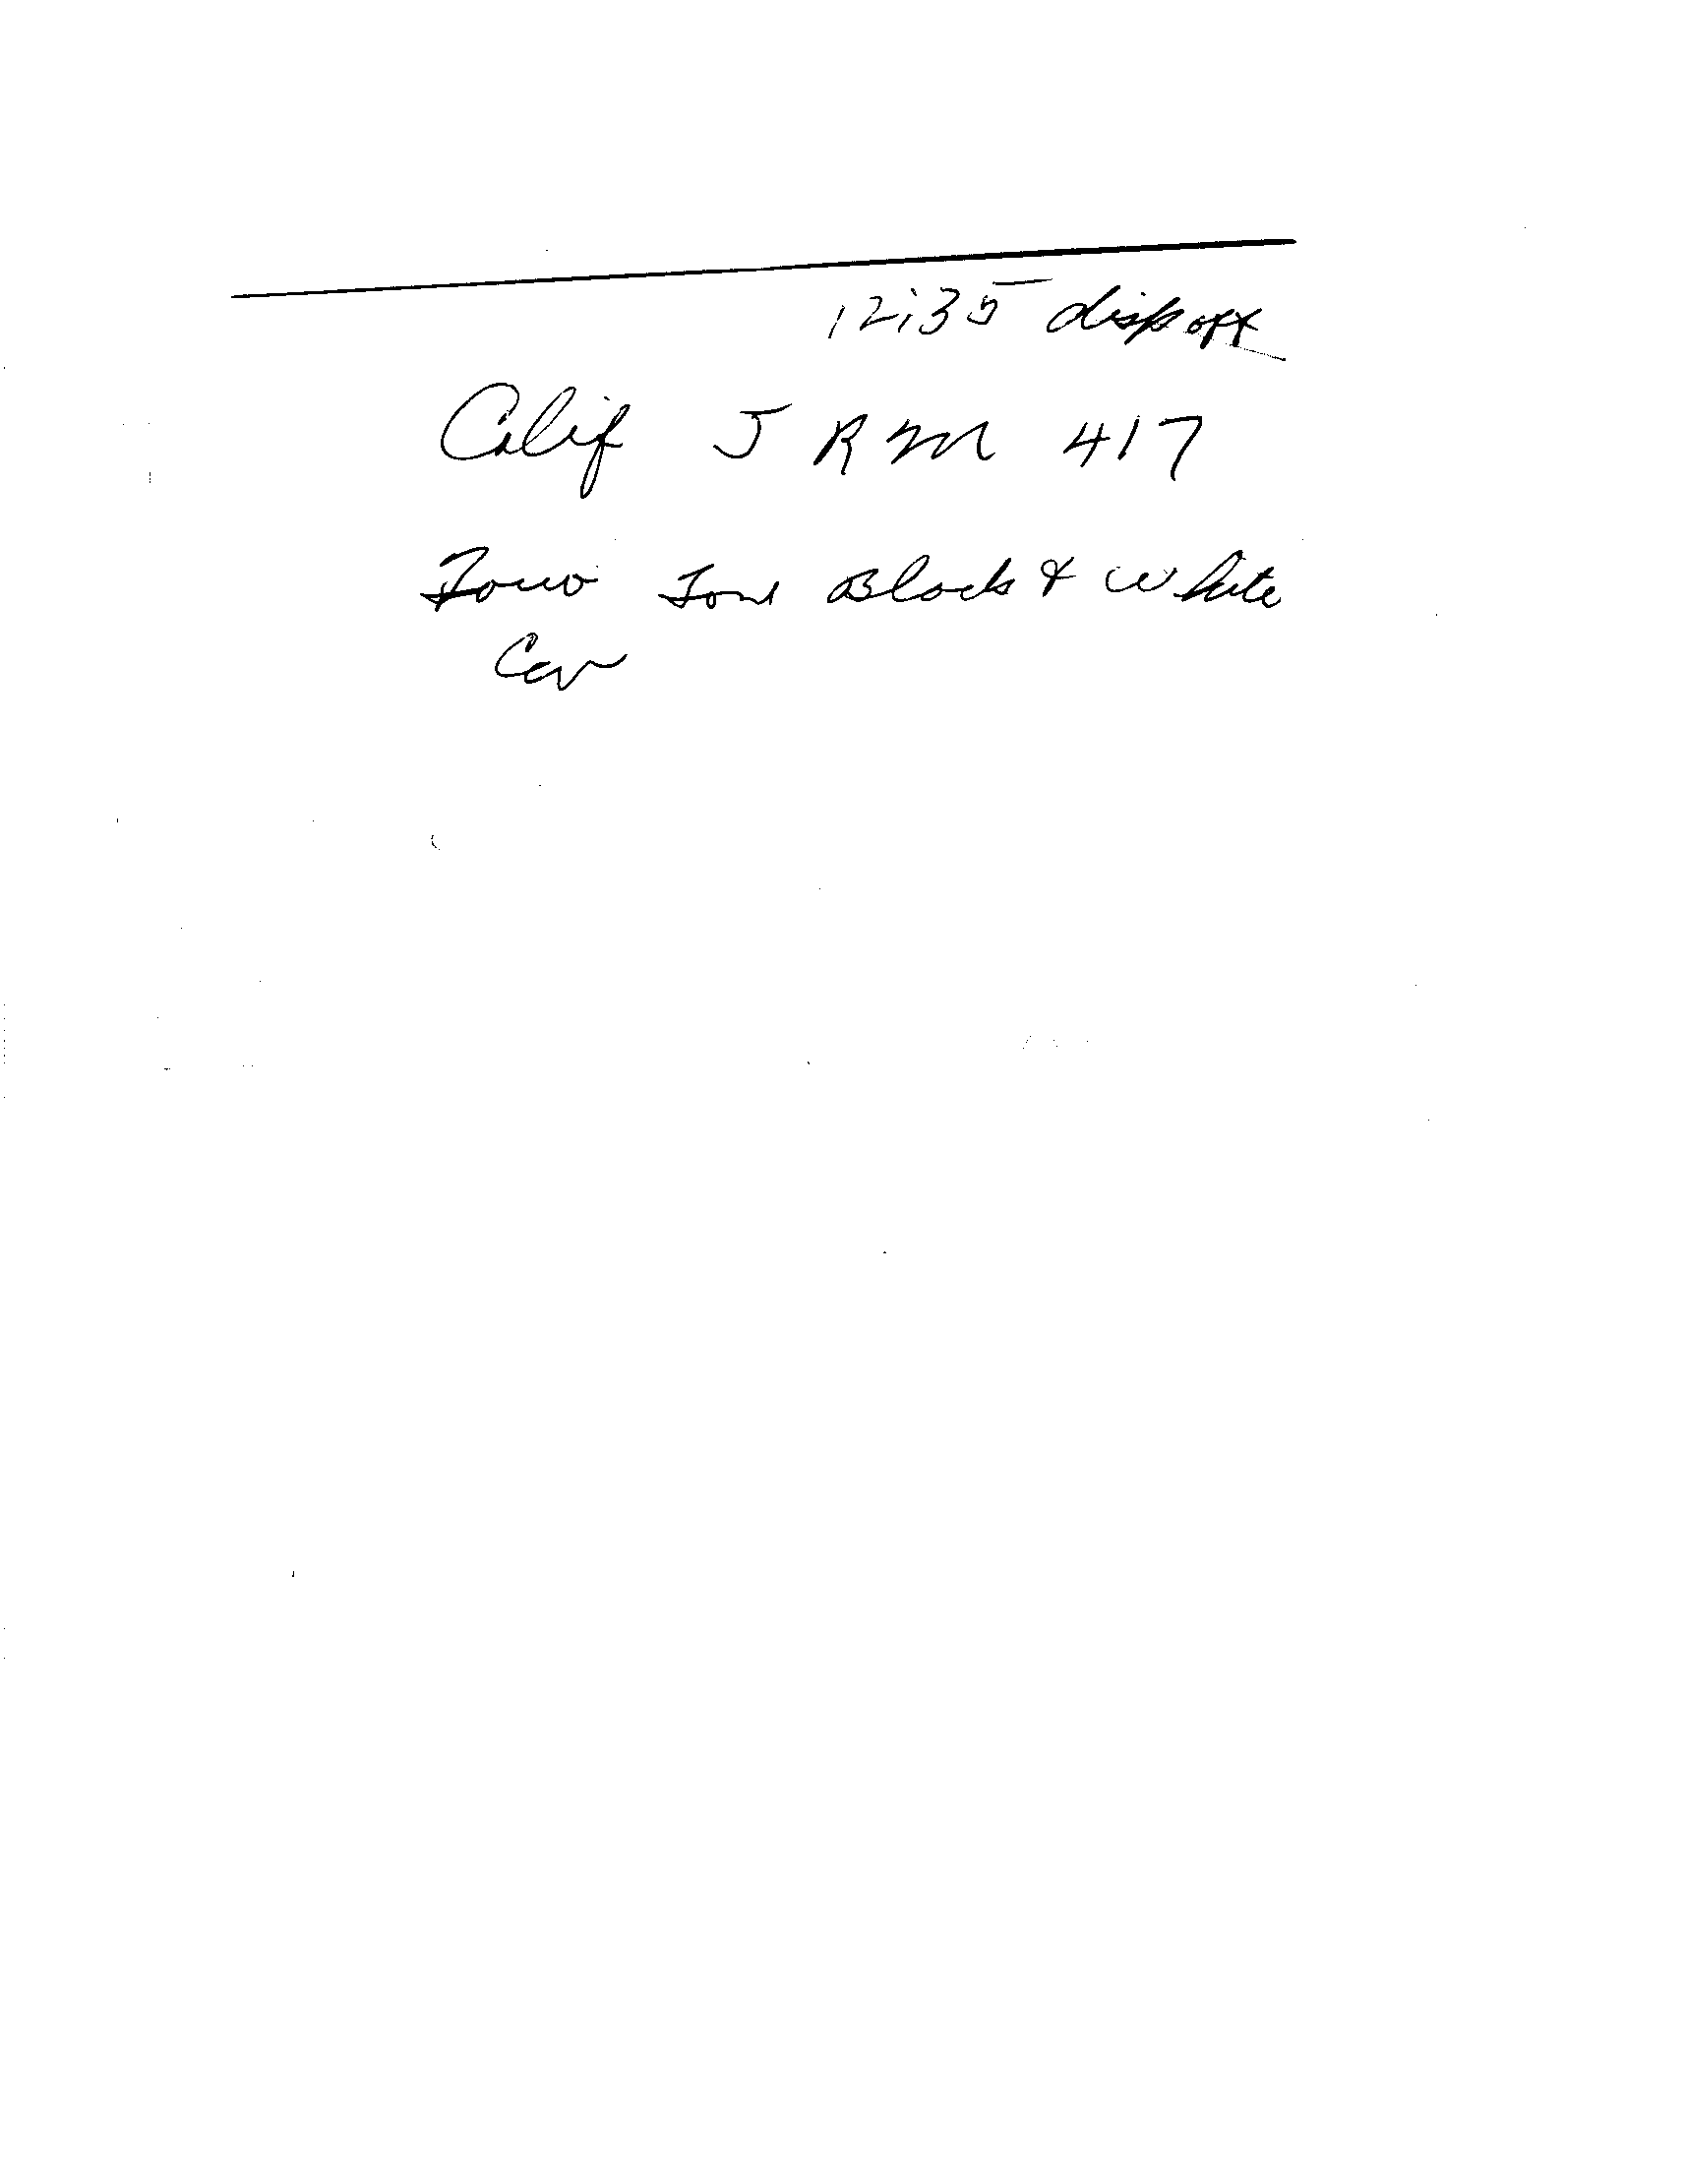 12:35 disp off
Calif J R M 417
Touo Tone Black & White
Car